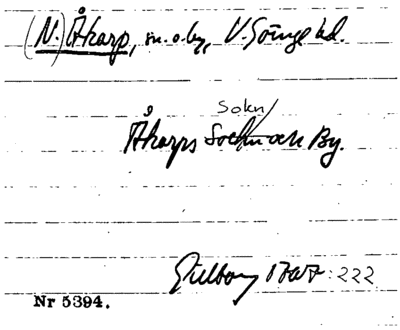 (N.) Åkarp, sn. o. by, V. Göinge hd.
Sokn/
Åkarps Sochn och By.
Gillberg 1767: 222
Nr 5394.